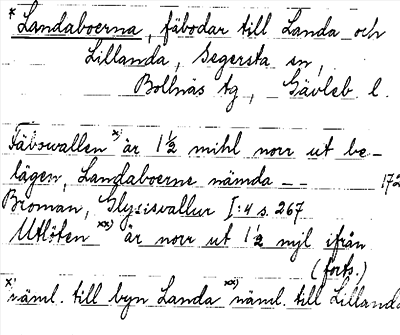 * Landaboerna, fäbodar till Landa och
Lillanda, Segersta sn,
Bollnäs tg, Gävleb. l.
Fäbowallen x) är 1 1/2 mihl norr ut be-
lägen, Landaboerne nämda -- 172
Broman, Glysisvallur I:4 s. 267
Utlöten xx) är norr ut 1 1/2 mjl ifrån
(forts.)
x) näml. till byn Landa xx) näml. till Lillanda